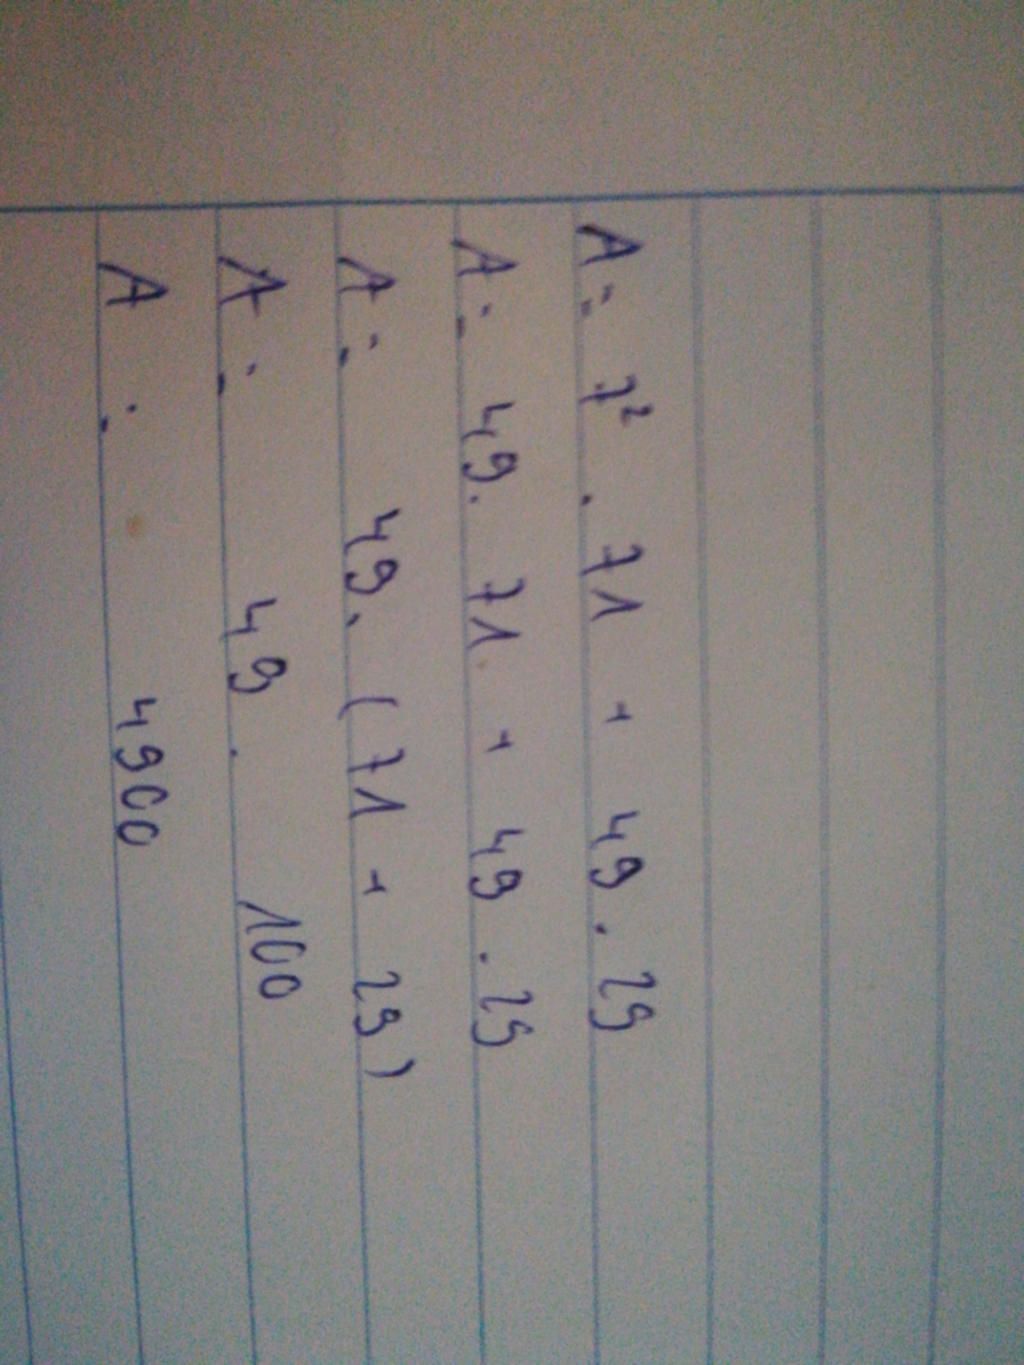 A = 7² . 71 + 49 . 29
A : 49 . 71 + 49 . 29
A : 49 . ( 71 + 29 )
A : 49 . 100
A : 4900